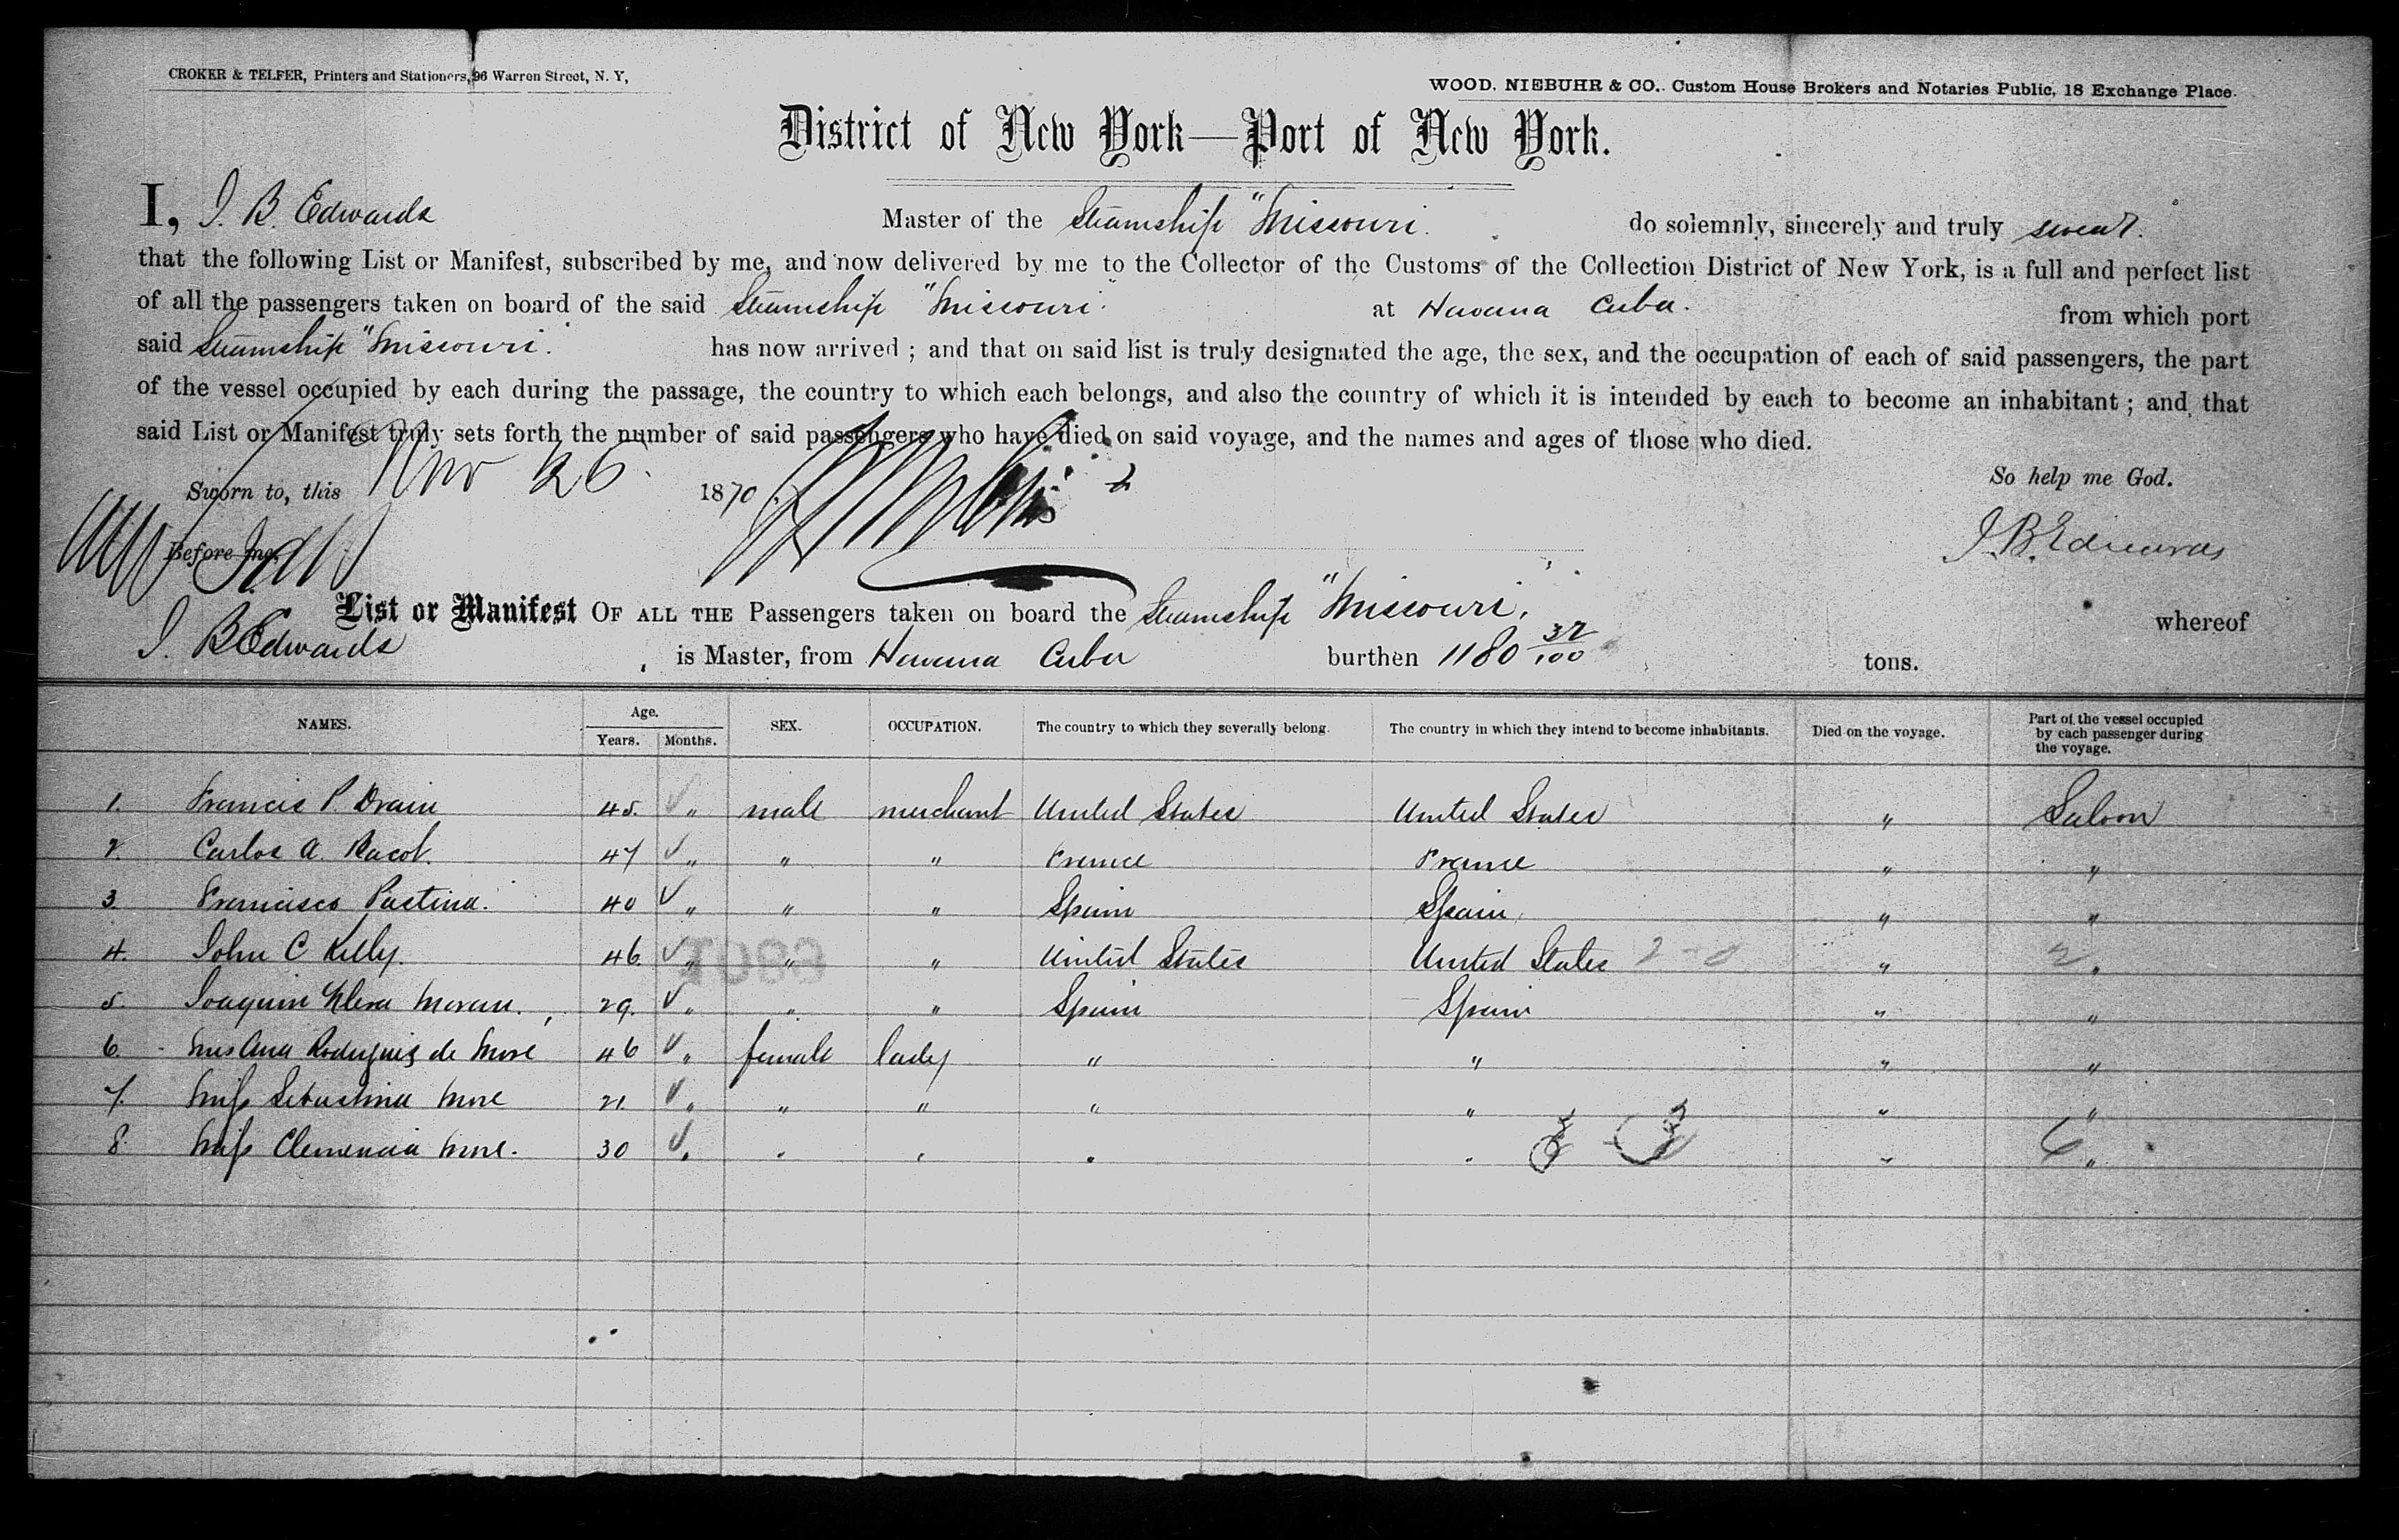 CROKER & TELFER, Printers and Stationers, 96 Warren Street, N. Y,
WOOD. NIEBUHR & CO.. Custom House Brokers and Notaries Public, 18 Exchange Place.
District of New York—Port of New York.
I, J. B. Edwards Master of the Steamship "Missouri. do solemnly, sincerely and truly swear.
that the following List or Manifest, subscribed by me, and now delivered by me to the Collector of the Customs of the Collection District of New York, is a full and perfect list
of all the passengers taken on board of the said Steamship "Missouri." at Havana Cuba. from which port
said Steamship "Missouri. has now arrived ; and that on said list is truly designated the age, the sex, and the occupation of each of said passengers, the part
of the vessel occupied by each during the passage, the country to which each belongs, and also the country of which it is intended by each to become an inhabitant ; and that
said List or Manifest truly sets forth the number of said passengers who have died on said voyage, and the names and ages of those who died.
So help me God.
Sworn to, this Nov 26 1870
Before me, J. B. Edwards
List or Manifest OF ALL THE Passengers taken on board the Steamship "Missouri, whereof
J. B Edwards is Master, from Havana Cuba burthen 1180 32/100 tons.
NAMES. Age. Years. Months. SEX. OCCUPATION. The country to which they severally belong. The country in which they intend to become inhabitants. Died on the voyage. Part of the vessel occupied by each passenger during the voyage.
1. Francis P. Drain 45. " male merchant United States United States " Saloon
2. Carlos A. Racot. 47 " " " France France " "
3. Francisco Pastina. 40 " " " Spain Spain. " "
4. John C Kelly. 46. " " " United States United States 2-0 " "
5. Joaquin Moran. 29. " " " Spain Spain " "
6. Mrs Ana Rodriguez de More 46 " female lady " " " "
7. Miss Sebastina More 21. " " " " " " "
8. Miss Clemencia More. 30 " " " " " " 6 "